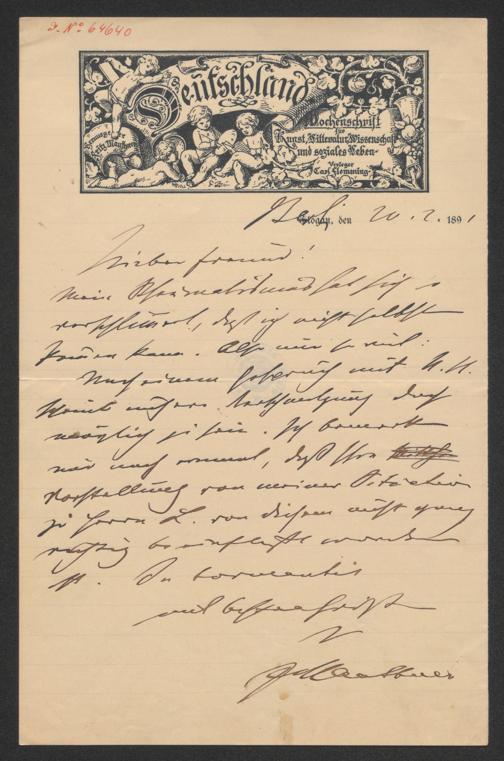 I. No 64640
Deutschland
Wochenschrift
für
Kunst, Litteratur, Wissenschaft
und soziales Leben
Herausgeber
Fritz Mauthner
Verleger
Carl Flemming
Glogau, den 20. 2. 1891
Berlin
Lieber Freund!
Mein Rheumatismus hat sich so
verschlimmert, daß ich nicht selbst
kommen kann. Also nur so viel:
Nach einem Gespräch mit
scheint unsere doch
möglich zu sein. Ich bemerke
nur noch einmal, daß Ihre
Vorstellung von meiner Situation
zu Herrn L. von diesem nicht ganz
richtig beeinflußt worden
ist. In tormentis
und
Ihr
F Mauthner